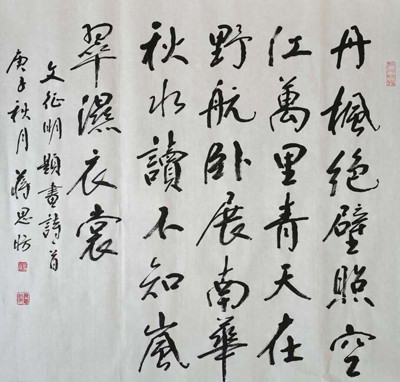 丹楓絶壁照空
江萬里青天在
野航卧展南華
秋水讀不知嵐
翠濕衣裳
文征明題畫詩一首
庚子秋月蔣思